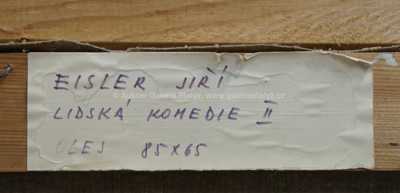 EISLER JIŘÍ
LIDSKÁ KOMEDIE II
OLEJ 85x65